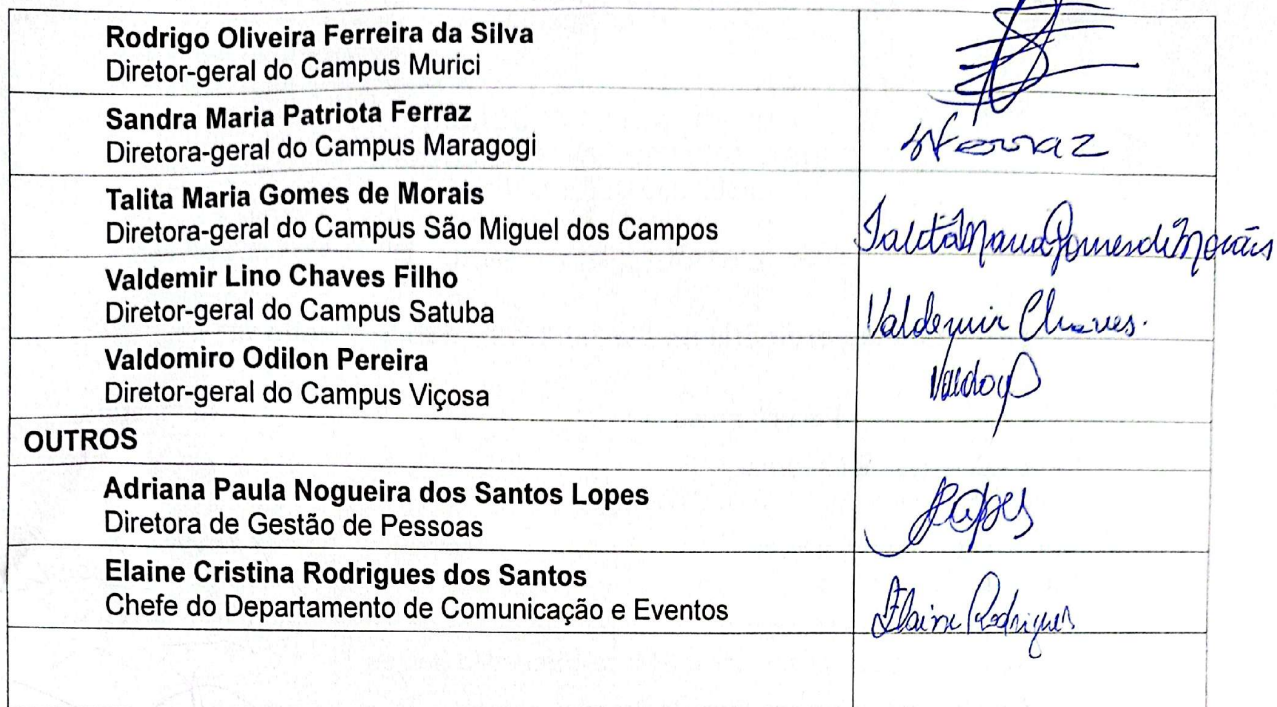 Rodrigo Oliveira Ferreira da Silva
Diretor-geral do Campus Murici
Sandra Maria Patriota Ferraz
Diretora-geral do Campus Maragogi
Ferraz
Talita Maria Gomes de Morais
Diretora-geral do Campus São Miguel dos Campos
Talita Maria Gomes de Morais
Valdemir Lino Chaves Filho
Diretor-geral do Campus Satuba
Valdemir Chaves.
Valdomiro Odilon Pereira
Diretor-geral do Campus Viçosa
OUTROS
Adriana Paula Nogueira dos Santos Lopes
Diretora de Gestão de Pessoas
Lopes
Elaine Cristina Rodrigues dos Santos
Chefe do Departamento de Comunicação e Eventos
Elaine Rodrigues